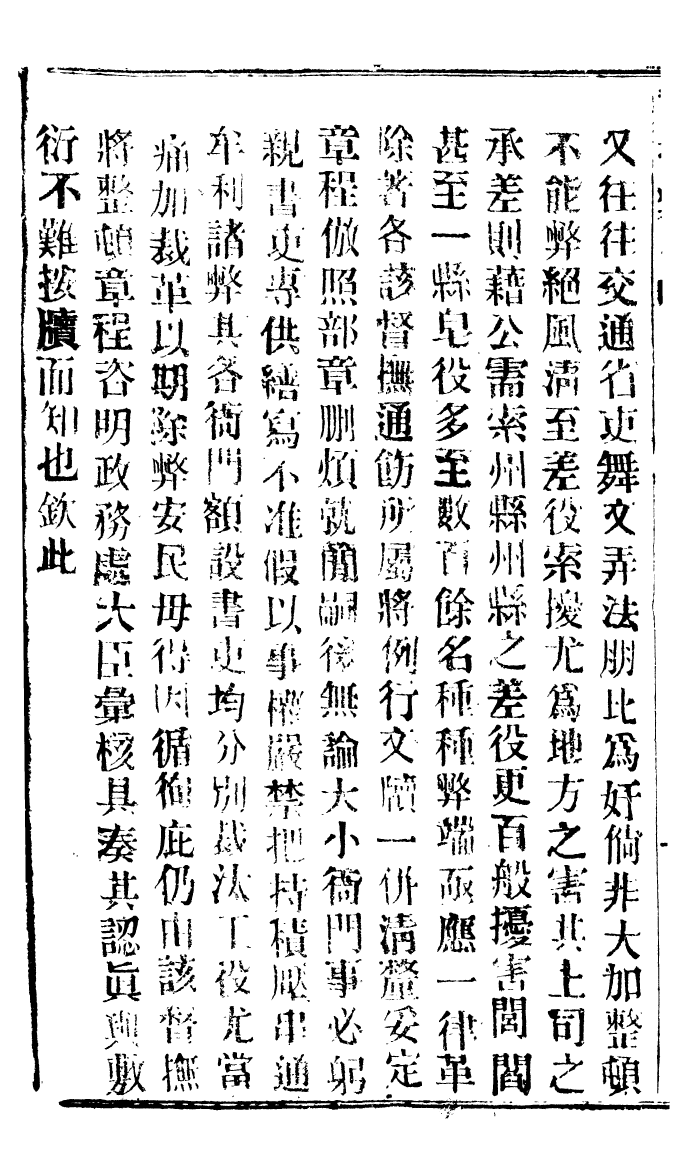 又往往交通省吏舞文弄法朋比爲奸倘非大加整頓
不能弊絕風淸至差役索擾尤爲地方之害其上司之
承差則藉公需索州縣州縣之差役更百般擾害閭閻
甚至一縣皂役多至數百餘名種種弊端亟應一律革
除著各該督撫通飭所屬將例行文牘一併淸釐妥定
章程倣照部章刪煩就簡嗣後無論大小衙門事必躬
親書吏專供繕寫不准假以事權嚴禁把持積壓串通
牟利諸弊其各衙門額設書吏均分別裁汰工役尤當
痛加裁革以期除弊安民毋得因循徇庇仍由該督撫
將整頓章程咨明政務處大臣彙核具奏其認眞與敷
衍不難按牘而知也欽此